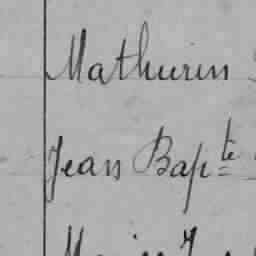 Mathurin
Jean Bapte